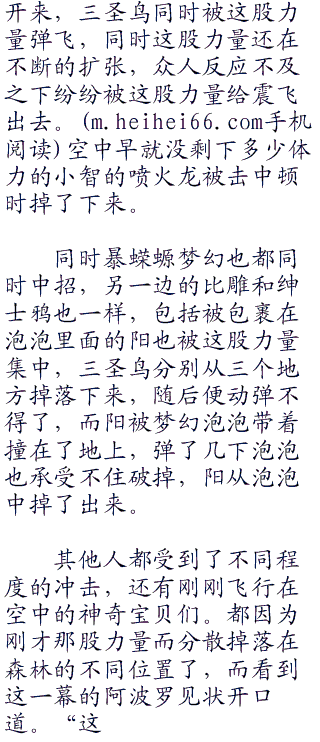 开来，三圣鸟同时被这股力
量弹飞，同时这股力量还在
不断的扩张，众人反应不及
之下纷纷被这股力量给震飞
出去。(m.heihei66.com手机
阅读)空中早就没剩下多少体
力的小智的喷火龙被击中顿
时掉了下来。
同时暴蝾螈梦幻也都同
时中招，另一边的比雕和绅
士鸦也一样，包括被包裹在
泡泡里面的阳也被这股力量
集中，三圣鸟分别从三个地
方掉落下来，随后便动弹不
得了，而阳被梦幻泡泡带着
撞在了地上，弹了几下泡泡
也承受不住破掉，阳从泡泡
中掉了出来。
其他人都受到了不同程
度的冲击，还有刚刚飞行在
空中的神奇宝贝们。都因为
刚才那股力量而分散掉落在
森林的不同位置了，而看到
这一幕的阿波罗见状开口
道。“这